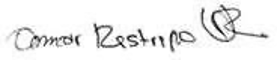 Connor Restrepo